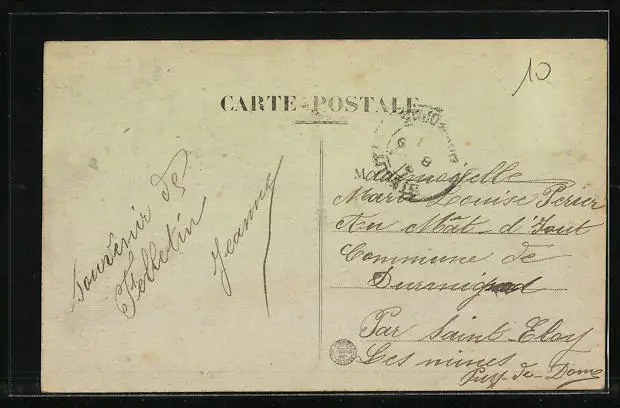 10
CARTE POSTALE
Souvenir de
Felletin
Jeanne
Mademoiselle
Marie Louise Perier
Au Mât d'
Commune de
Par Saint Eloy
Les mines
Puy-de-Dome